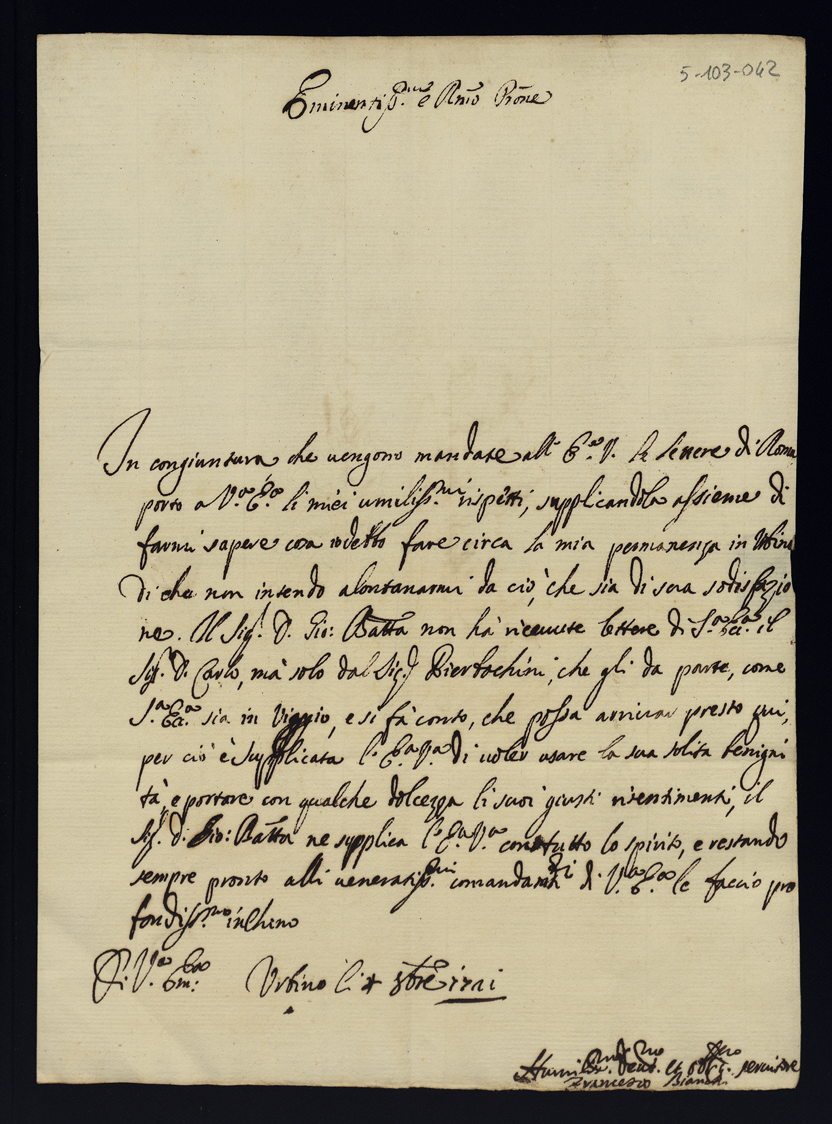 5-103-042
Eminentiss.mo e Rmo Prone
In congiuntura che vengono mandate all' E.a V. le lettere di Roma
porto a V.a E.a li miei umiliss.mi rispetti, supplicandola assieme di
farmi sapere cosa debbo fare circa la mia permanenza in Urbino
di che non intendo alontanarmi da ciò, che sia di sua sodisfazio
ne. Il Sig.r D. Gio: Batta non ha riceuute lettere di S.a Ecc.a il
Sig.r D. Carlo, mà solo dal Sig.r Piertachini, che gli da parte, come
S.a Ecc.a sia in Viaggio, e si fà conto, che possa arrivar presto qui,
per ciò è supplicata l'E.a V.a di voler usare la sua solita benigni
tà, e portare con qualche dolcezza li suoi giusti risentimenti, il
Sig.r D. Gio: Batta ne supplica l'E.a V.a con tutto lo spirito, e restando
sempre pronto alli veneratiss.mi comandam.ti di V.a E.a le faccio pro
fondiss.mo inchino
Di V.a Em.a Urbino li 4 8bre 1721
Humiliss.mo Deuot. et obblig. servitore
Francesco Bianchi